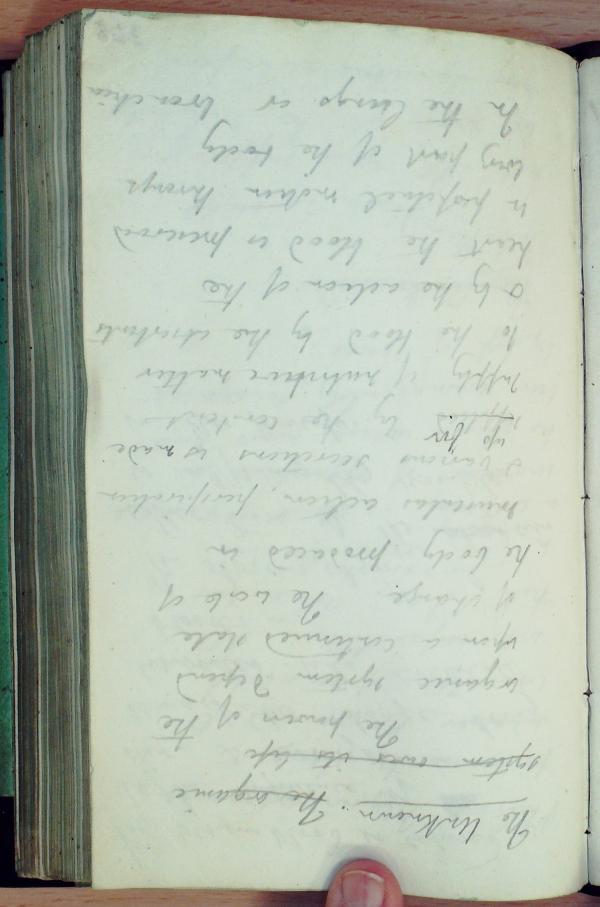 The Unknown. The organic
system owes its life
The powers of the
organic system depend
upon a continued state
of change. The waste of
the body produced in
muscular action, perspiration
& various secretions is made
up for
supplied by the constant
supply of nutritive matter
to the blood by the absorbents
& by the action of the
heart the blood is preserved
in perpetual motion through
every part of the body
In the lungs or bronchia
328